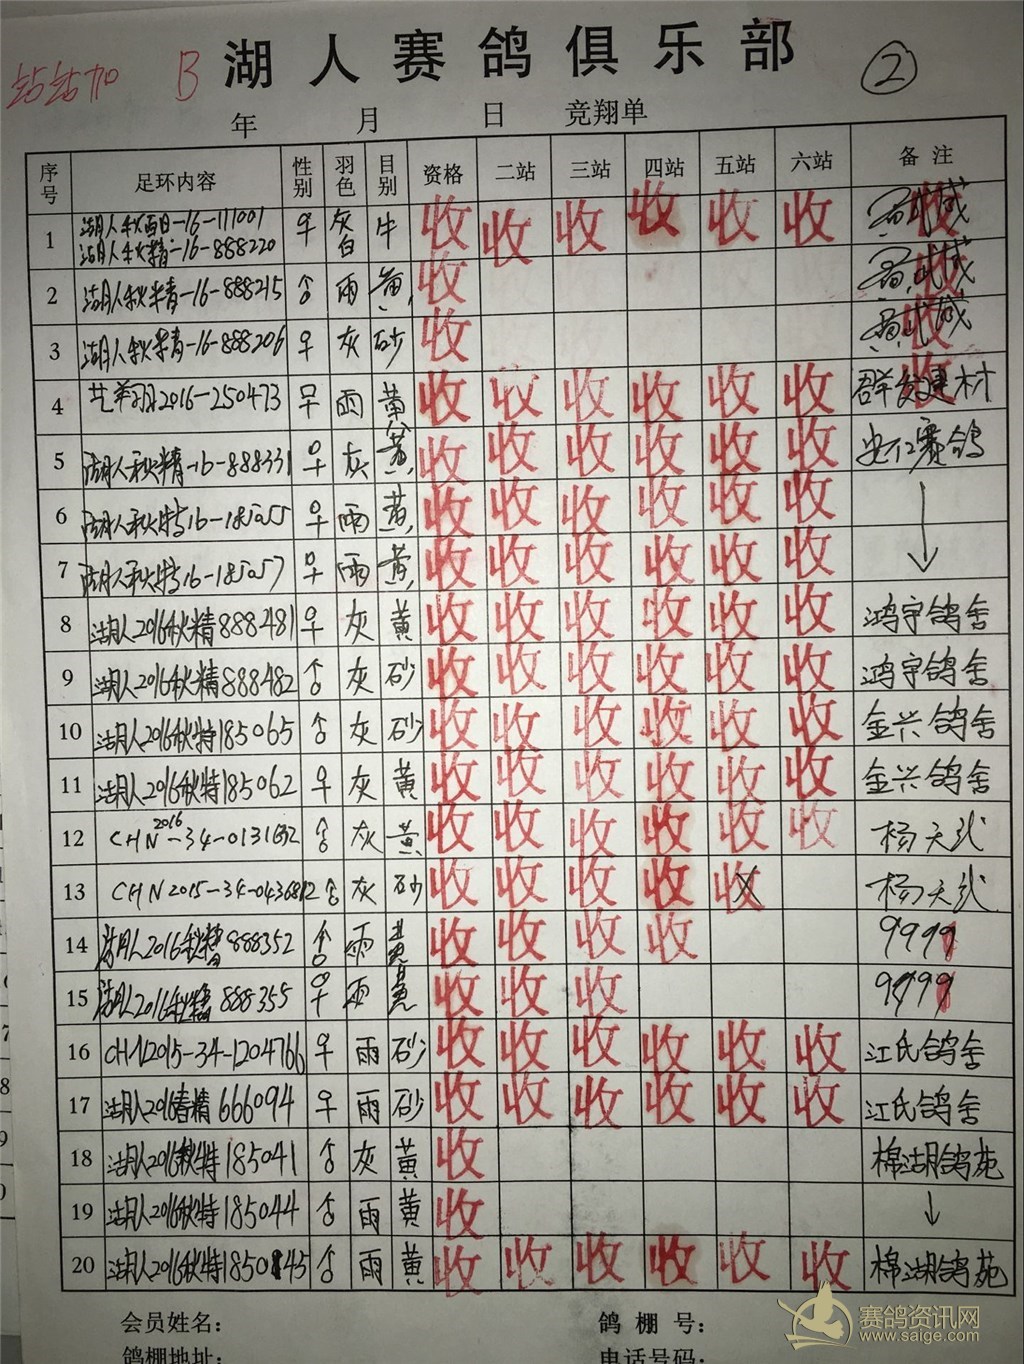 站站加 B 湖人赛鸽俱乐部 ②
年 月 日 竞翔单
序号 足环内容 性别 羽色 目别 资格 二站 三站 四站 五站 六站 备注
1 湖人秋 -16-111001 灰白 牛 收 收 收 收 收 收 收
湖人秋精-16-888220
2 湖人秋精-16-888215 雨 黄 收 收
3 湖人秋精-16-888206 灰 砂 收 收
4 2016-250473 雨 黄 收 收 收 收 收 收 群发建材 收
5 湖人秋精-16-888331 灰 黄 收 收 收 收 收 收 安仁赛鸽
6 湖人秋特16-185055 雨 黄 收 收 收 收 收 收 ↓
7 湖人秋特16-185057 雨 黄 收 收 收 收 收 收
8 湖人2016秋精888481 灰 黄 收 收 收 收 收 收 鸿宇鸽舍
9 湖人2016秋精888482 灰 砂 收 收 收 收 收 收 鸿宇鸽舍
10 湖人2016秋特185065 灰 砂 收 收 收 收 收 收 金兴鸽舍
11 湖人2016秋特185062 灰 黄 收 收 收 收 收 收 金兴鸽舍
12 CHN2016-34-0131692 灰 黄 收 收 收 收 收 收 杨天
13 CHN2015-34-0436812 灰 砂 收 收 收 收 收 杨天
14 湖人2016秋精888352 雨 黄 收 收 收 收 9999
15 湖人2016秋精888355 雨 黄 收 收 收 9999
16 CHN2015-34-1204766 雨 砂 收 收 收 收 收 收 江氏鸽舍
17 湖人2016春精666094 雨 砂 收 收 收 收 收 收 江氏鸽舍
18 湖人2016秋特185041 灰 黄 收 棉湖鸽苑
19 湖人2016秋特185044 雨 黄 收 ↓
20 湖人2016秋特185045 雨 黄 收 收 收 收 收 收 棉湖鸽苑
会员姓名: 鸽棚号:
鸽棚地址: 电话号码:
赛鸽资讯网
www.saige.com